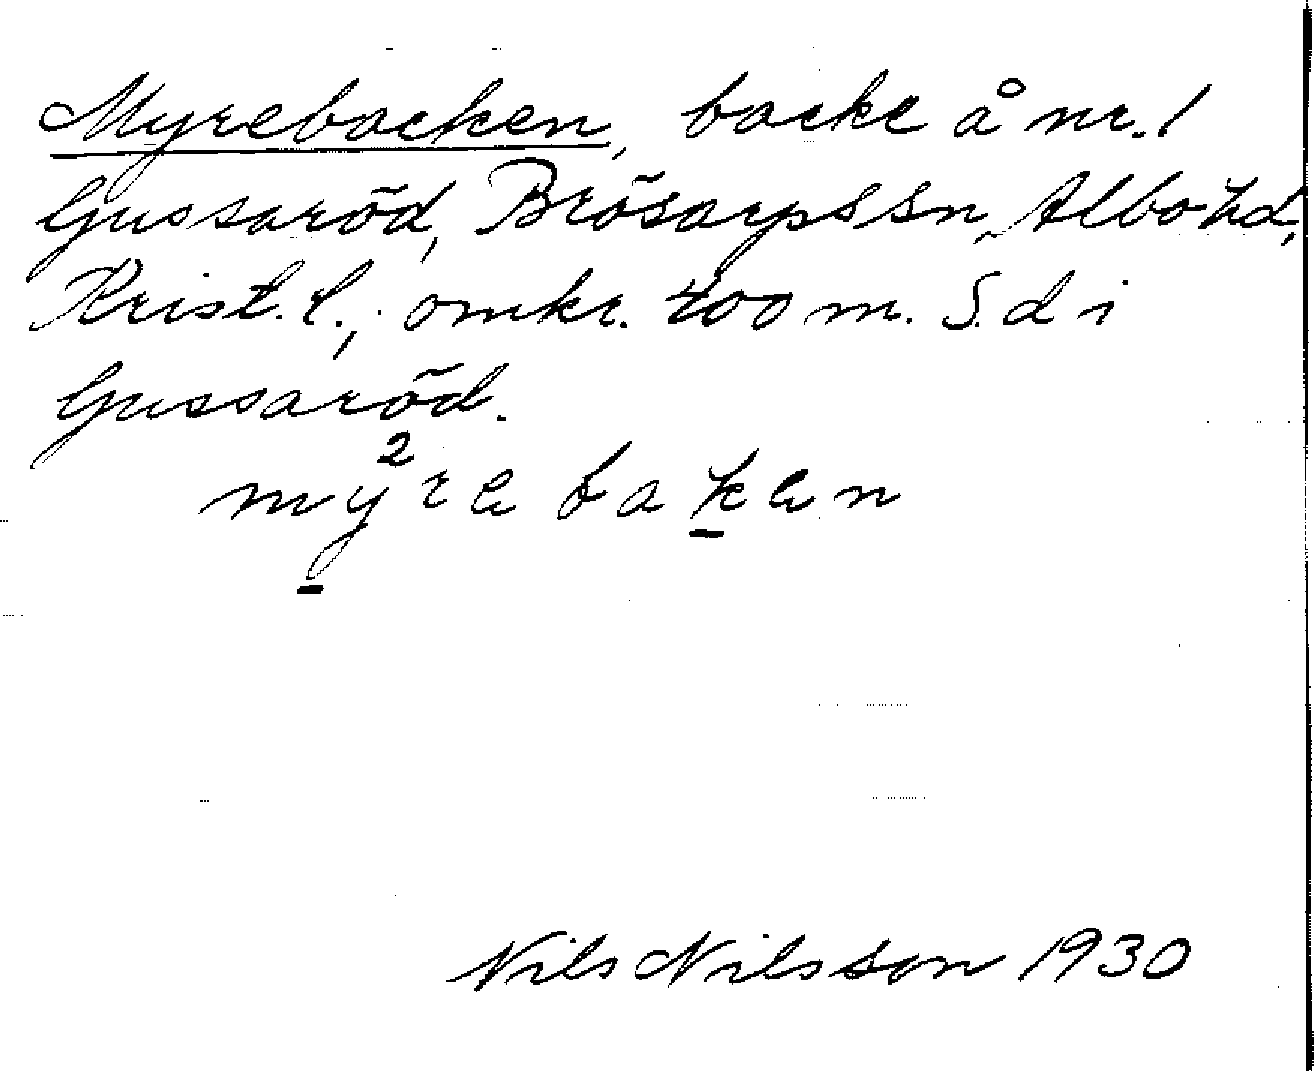 Myrebacken, backe å nr. 1
Gussaröd, Brösarps Sn, Albo hd,
Krist. l., omkr. 400 m. S. d i
Gussaröd.
my²re baken
Nils Nilsson 1930